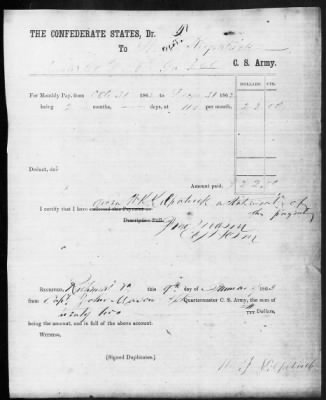 THE CONFEDERATE STATES, Dr.
To Kilpatrick
C. S. Army.
DOLLARS CTS.
For Monthly Pay, from Oct 31 1862 to Dec 31 1862
being 2 months, days, at 11 per month, 22 00
Deduct, &c
Amount paid, $ 22 00
I certify that I have given Kilpatrick a statement of
endorsed this Payment on
this payment
Descriptive Roll.
Jno Mason
RECEIVED, Richmond Va this 9th day of January 1863
from Capt John Mason Quartermaster C. S. Army, the sum of
twenty two Dollars,
being the amount, and in full of the above account.
WITNESS,
[Signed Duplicates.]
Kilpatrick